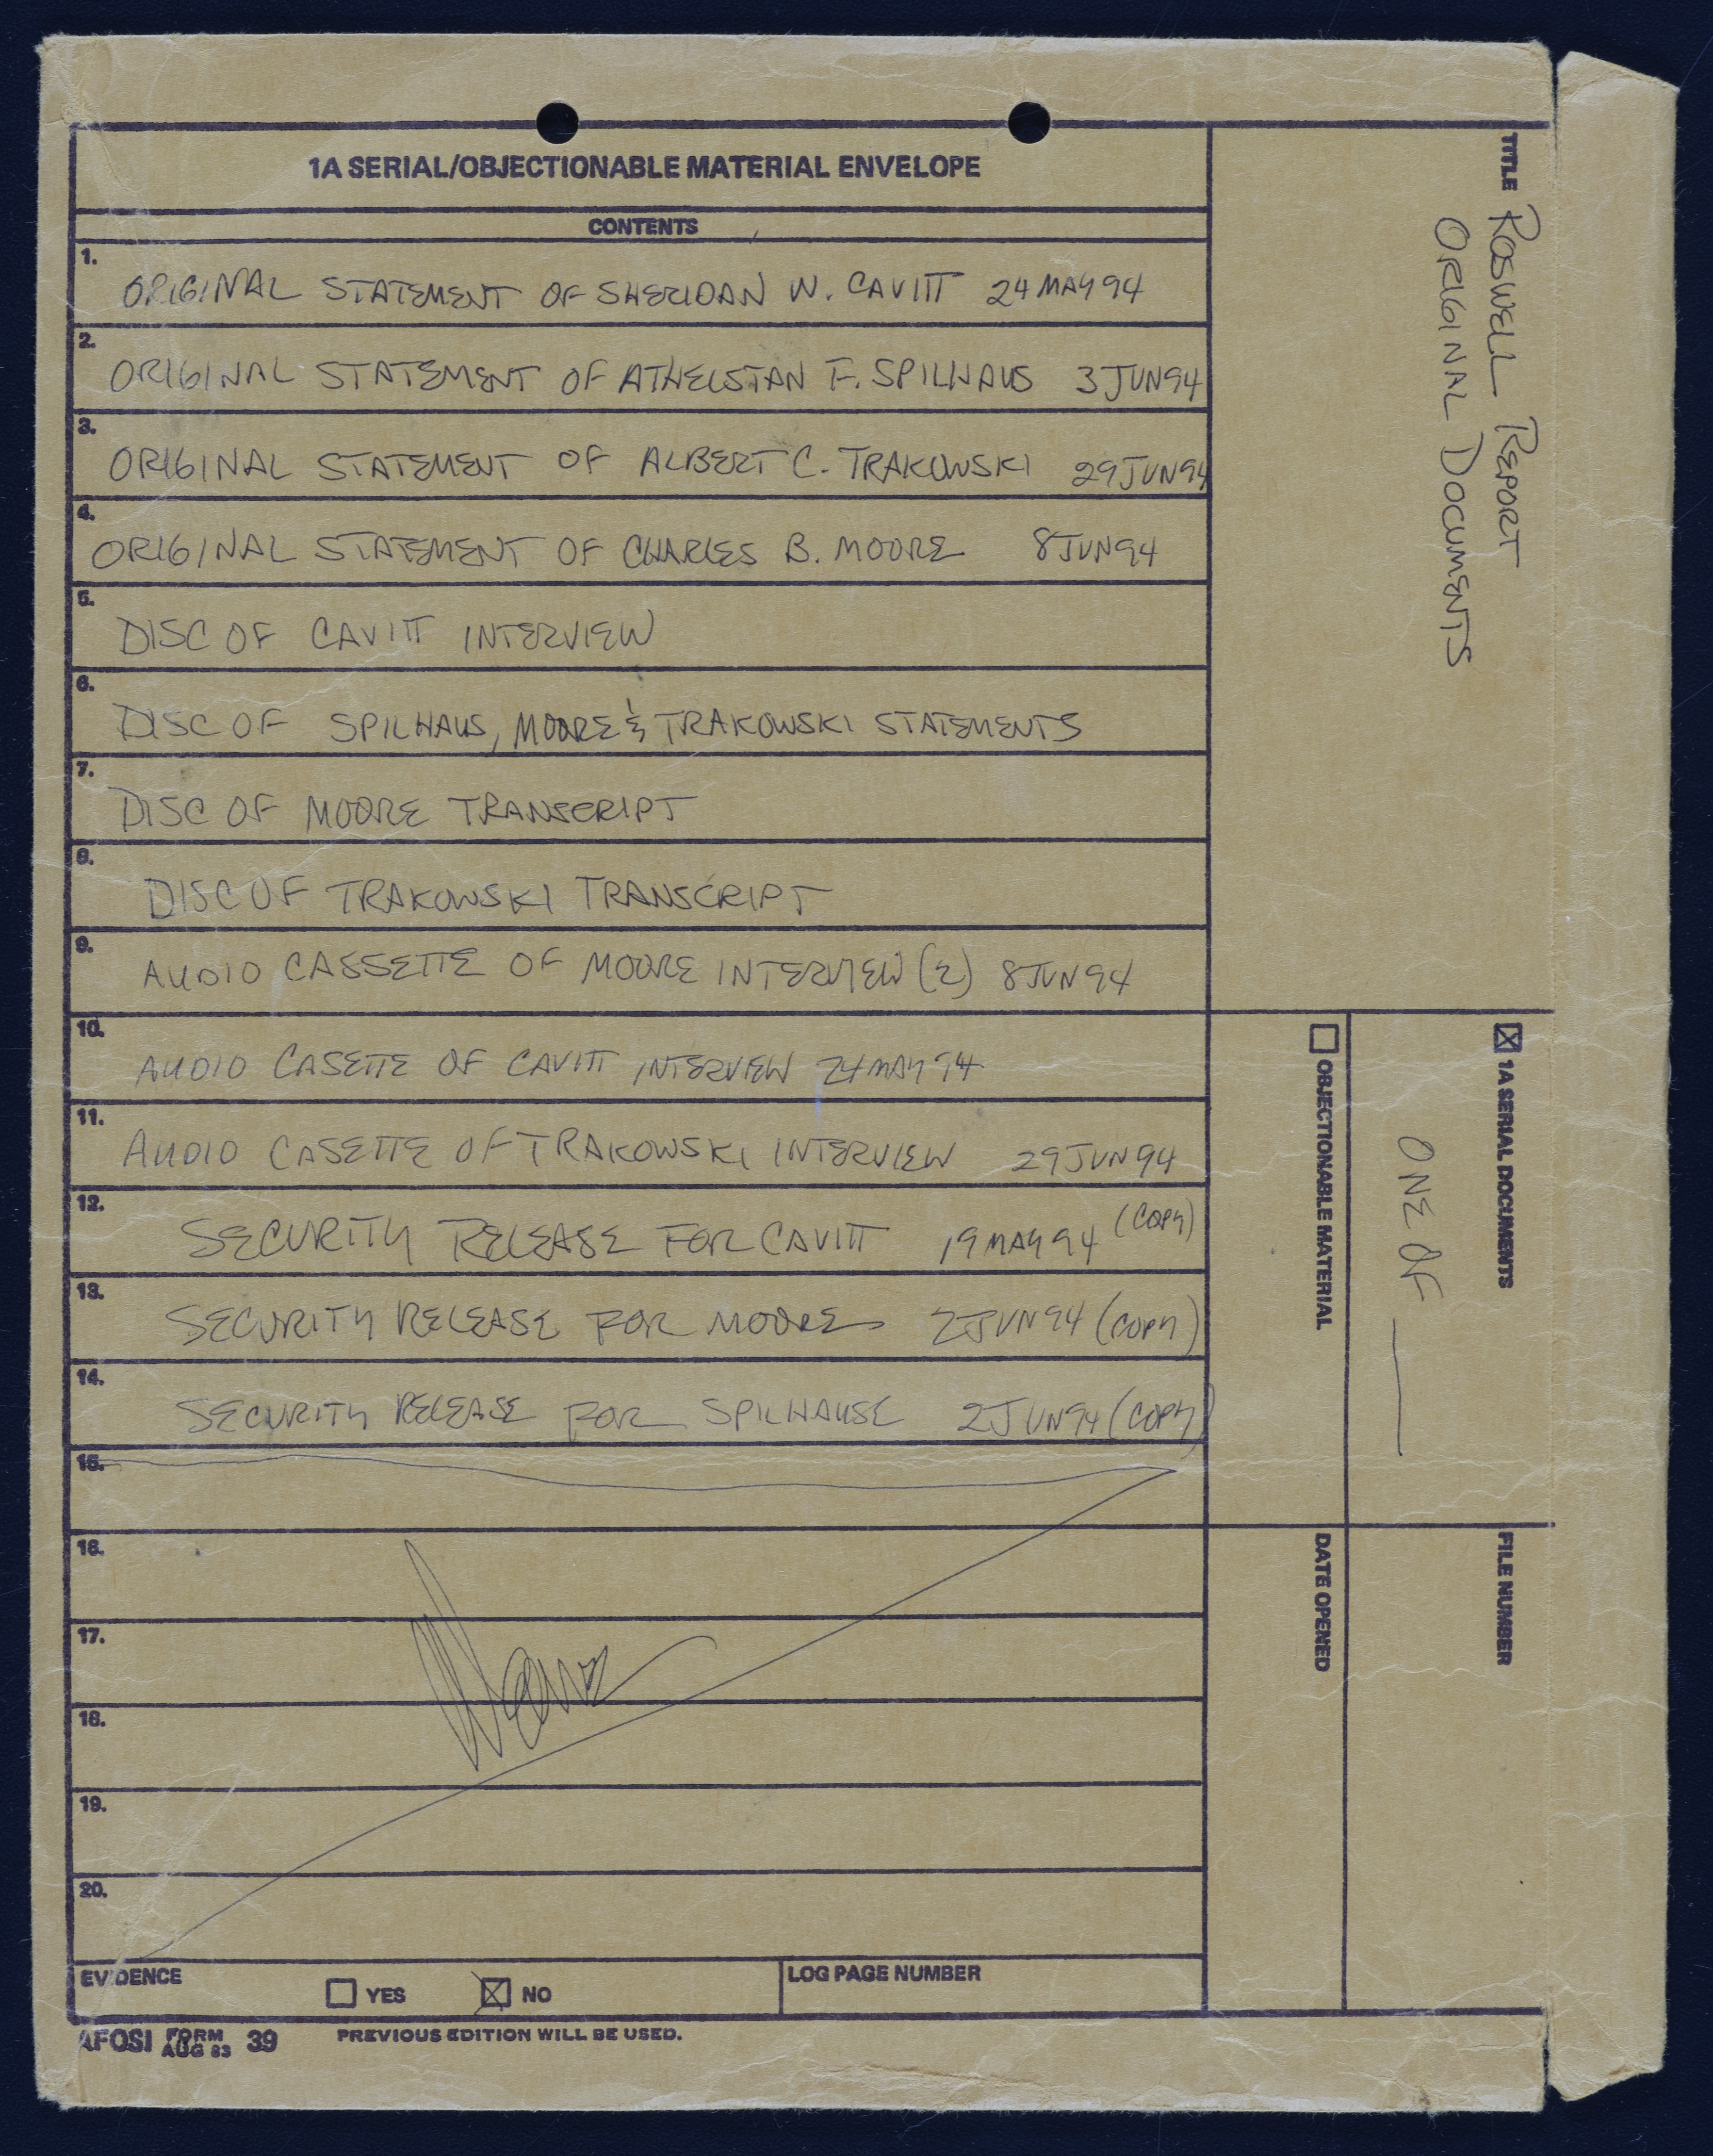 1A SERIAL/OBJECTIONABLE MATERIAL ENVELOPE
CONTENTS
1.
ORIGINAL STATEMENT OF SHERIDAN W. CAVITT 24 MAY 94
2.
ORIGINAL STATEMENT OF ATHELSTAN F. SPILHAUS 3 JUN 94
3.
ORIGINAL STATEMENT OF ALBERT C. TRAKOWSKI 29 JUN 94
4.
ORIGINAL STATEMENT OF CHARLES B. MOORE 8 JUN 94
5.
DISC OF CAVITT INTERVIEW
6.
DISC OF SPILHAUS, MOORE & TRAKOWSKI STATEMENTS
7.
DISC OF MOORE TRANSCRIPT
8.
DISC OF TRAKOWSKI TRANSCRIPT
9.
AUDIO CASSETTE OF MOORE INTERVIEW (2) 8 JUN 94
10.
AUDIO CASETTE OF CAVITT INTERVIEW 24 MAY 94
11.
AUDIO CASETTE OF TRAKOWSKI INTERVIEW 29 JUN 94
12.
SECURITY RELEASE FOR CAVITT 19 MAY 94 (COPY)
13.
SECURITY RELEASE FOR MOORE 2 JUN 94 (COPY)
14.
SECURITY RELEASE FOR SPILHAUSE 2 JUN 94 (COPY)
15.
16.
17.
18.
19.
20.
EVIDENCE
YES
NO
LOG PAGE NUMBER
AFOSI FORM AUG 83 39 PREVIOUS EDITION WILL BE USED.
TITLE ROSWELL REPORT
ORIGINAL DOCUMENTS
1A SERIAL DOCUMENTS
ONE OF
OBJECTIONABLE MATERIAL
FILE NUMBER
DATE OPENED